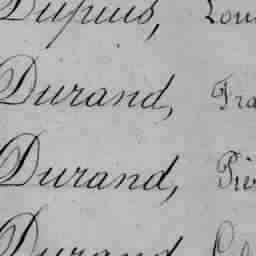 Dupuis, Lou
Durand, Fra
Durand, Pie
Durand